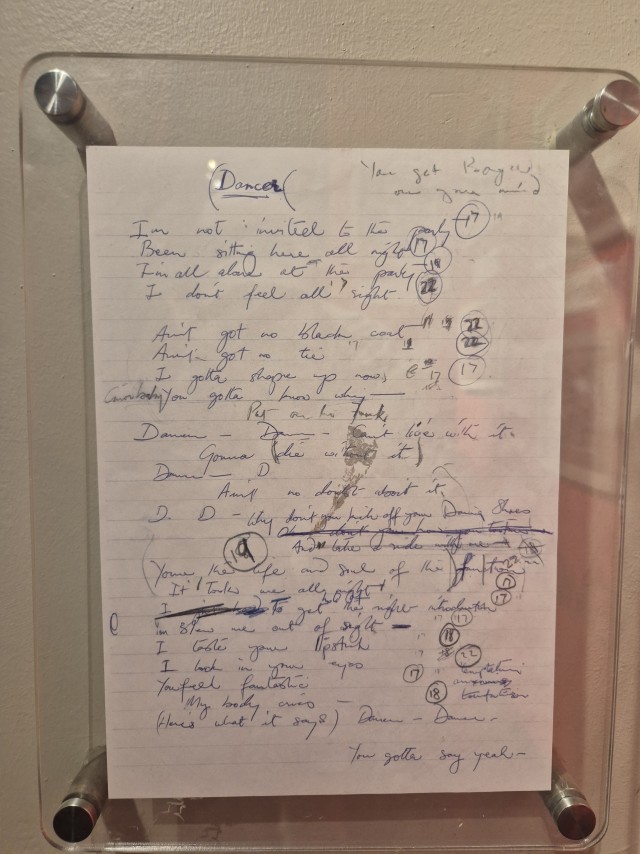 (Dancer(
You get
our your mind
I'm not invited to the party 17
Been sitting here all night 17
I'm all alone at the party 18
I don't feel all right 22
Ain't got no black coat 22
Ain't got no tie 22
I gotta shape up now, 17 17
You gotta know why —
Put on his
Dancer — Dancer — Can't live with it.
Gonna (die without it)
Dancer — D
Ain't no doubt about it,
D. D — Why don't you kick off your Dancing Shoes
And take a ride with me
19
Youre the life and soul of the function
It took me all night 17
I to get the right introduction 17
me out of sight — 17
I taste your lipstick 18
I look in your eyes 22
You feel fantastic 17
My body cries — 18
temptation
(Here's what it says) Dancer — Dancer —
You gotta say yeah —